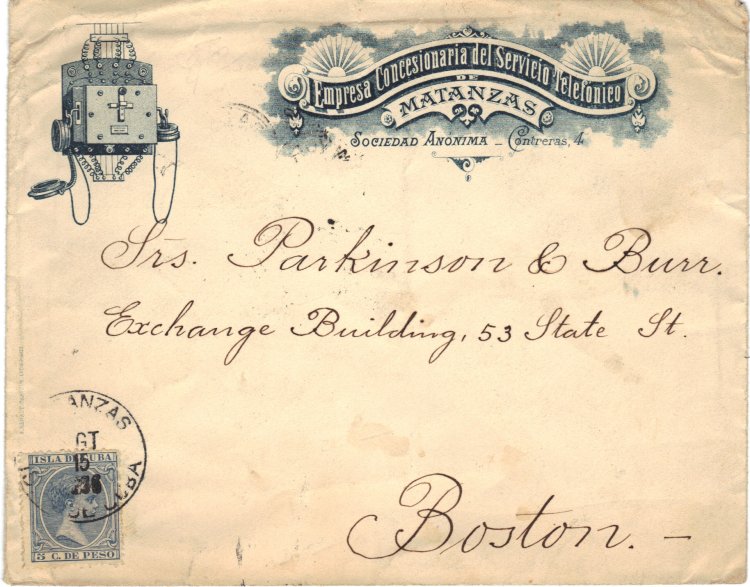 Empresa Concesionaria del Servicio Telefónico
DE
MATANZAS
SOCIEDAD ANÓNIMA - Contreras, 4
Srs. Parkinson & Burr.
Exchange Building, 53 State St.
Boston. -
ANZAS
GT
15
CUBA
ISLA DE CUBA
5 C. DE PESO